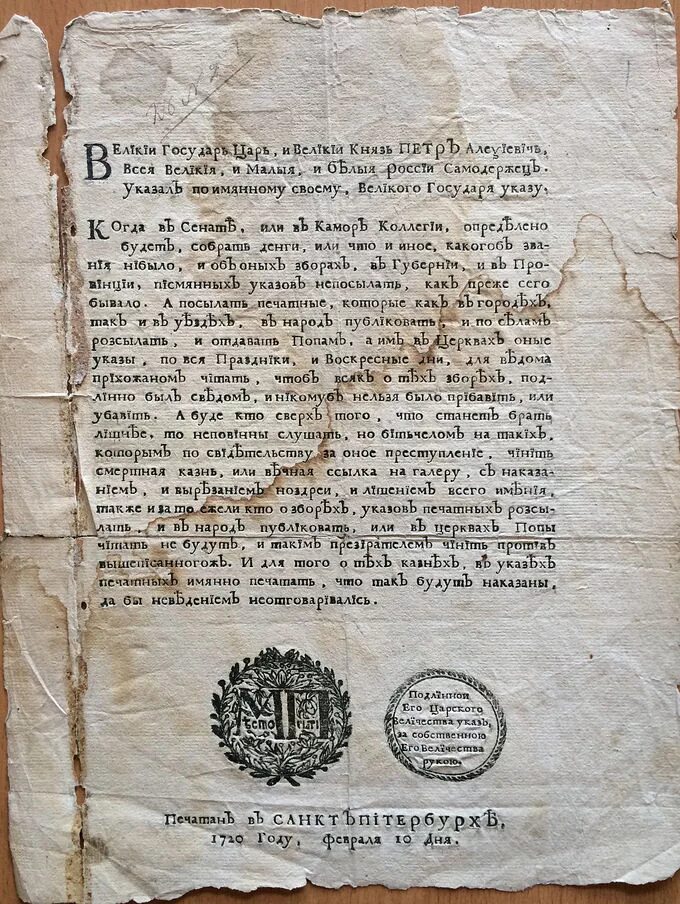 ВЕЛІКІИ ГОСУДАРЬ ЦАРЬ, И ВЕЛІКІИ КНЯЗЬ ПЕТРЪ АЛЕѮІЕВІЧЬ,
ВСЕЯ ВЕЛІКІЯ, И МАЛЫЯ, И БѢЛЫЯ РОССІИ САМОДЕРЖЕЦЪ.
УКАЗАЛЪ ПО ИМЯННОМУ СВОЕМУ, ВЕЛІКОГО ГОСУДАРЯ УКАЗУ.
Когда въ Сенатѣ, или въ Каморъ Коллегіи, опредѣлено
будетъ, собрать денги, или что и иное, какогобъ зва-
нія нібыло, и объ оныхъ зборахъ, въ Губерніи, и въ Про-
вінціи, пісмянныхъ указовъ непосылать, какъ преже сего
бывало. А посылать печатные, которые какъ въ городѣхъ,
такъ и въ уѣздѣхъ, въ народъ публіковать, и по сѣламъ
розсылать, и отдавать Попамъ, а имъ въ Церквахъ оные
указы, по вся Праздніки, и Воскресные дни, для вѣдома
пріхожаномъ чітать, чтобъ всякъ о тѣхъ зборѣхъ, под-
лінно былъ свѣдомъ, и нікомубъ нельзя было прібавіть, или
убавіть. А буде кто сверхъ того, что станетъ брать
лішчѣе, то неповінны слушать, но біть челомъ на такіхъ,
которымъ по свідѣтельству за оное преступленіе, чініть
смертная казнь, или вѣчная ссылка на галеру, съ наказа-
ніемъ, и вырѣзаніемъ ноздреи, и лішеніемъ всего имѣнія,
также и за то ежели кто о зборѣхъ, указовъ печатныхъ розсы-
лать, и въ народъ публіковать, или въ церквахъ Попы
чітать не будутъ, и такімъ презірателемъ чініть протівъ
вышепісанногожъ. И для того о тѣхъ казнѣхъ, въ указѣхъ
печатныхъ имянно печатать, что такъ будутъ наказаны,
да бы невѣденіемъ неотговарівалісь.
Подлінноі
Его Царского
Велічества указъ,
за собственною
Его Велічества
рукою.
Печатанъ въ САНКТЪПІТЕРБУРХѢ,
1720 Году, Февраля 10 Дня.